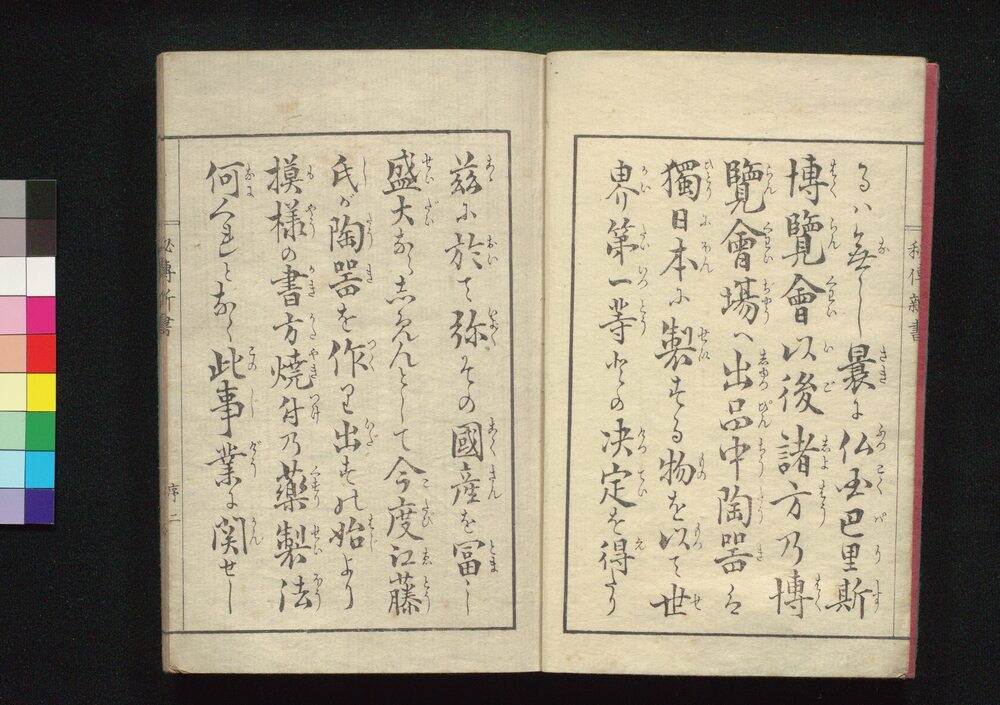 るハ無し曩に仏国巴里斯
博覽會以後諸方乃博
覽會場へ出品中陶噐は
獨日本に製する物を以て世
界第一等との决定を得たり
茲に於て弥その國産を冨し
盛大ならしめんとして今度江藤
氏が陶噐を作り出すの始より
摸様の書方燒付乃藥製法
何くれとなく此事業に関せし
秘傳新書
序二